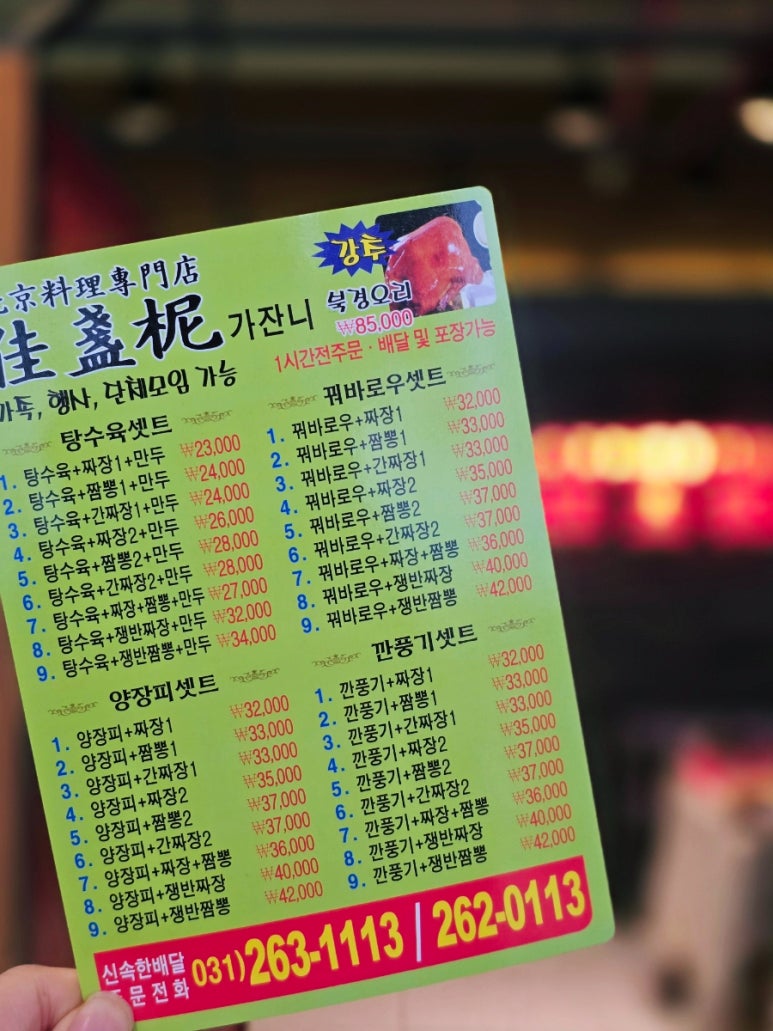 北京料理專門店
佳盞柅 가잔니
가족, 행사, 단체모임 가능
강추
북경오리
₩85,000
1시간전주문 · 배달 및 포장가능
탕수육셋트
1. 탕수육+짜장1+만두 ₩23,000
2. 탕수육+짬뽕1+만두 ₩24,000
3. 탕수육+간짜장1+만두 ₩24,000
4. 탕수육+짜장2+만두 ₩26,000
5. 탕수육+짬뽕2+만두 ₩28,000
6. 탕수육+간짜장2+만두 ₩28,000
7. 탕수육+짜장+짬뽕+만두 ₩27,000
8. 탕수육+쟁반짜장+만두 ₩32,000
9. 탕수육+쟁반짬뽕+만두 ₩34,000
꿔바로우셋트
1. 꿔바로우+짜장1 ₩32,000
2. 꿔바로우+짬뽕1 ₩33,000
3. 꿔바로우+간짜장1 ₩33,000
4. 꿔바로우+짜장2 ₩35,000
5. 꿔바로우+짬뽕2 ₩37,000
6. 꿔바로우+간짜장2 ₩37,000
7. 꿔바로우+짜장+짬뽕 ₩36,000
8. 꿔바로우+쟁반짜장 ₩40,000
9. 꿔바로우+쟁반짬뽕 ₩42,000
양장피셋트
1. 양장피+짜장1 ₩32,000
2. 양장피+짬뽕1 ₩33,000
3. 양장피+간짜장1 ₩33,000
4. 양장피+짜장2 ₩35,000
5. 양장피+짬뽕2 ₩37,000
6. 양장피+간짜장2 ₩37,000
7. 양장피+짜장+짬뽕 ₩36,000
8. 양장피+쟁반짜장 ₩40,000
9. 양장피+쟁반짬뽕 ₩42,000
깐풍기셋트
1. 깐풍기+짜장1 ₩32,000
2. 깐풍기+짬뽕1 ₩33,000
3. 깐풍기+간짜장1 ₩33,000
4. 깐풍기+짜장2 ₩35,000
5. 깐풍기+짬뽕2 ₩37,000
6. 깐풍기+간짜장2 ₩37,000
7. 깐풍기+짜장+짬뽕 ₩36,000
8. 깐풍기+쟁반짜장 ₩40,000
9. 깐풍기+쟁반짬뽕 ₩42,000
신속한배달
주문전화
031) 263-1113 / 262-0113